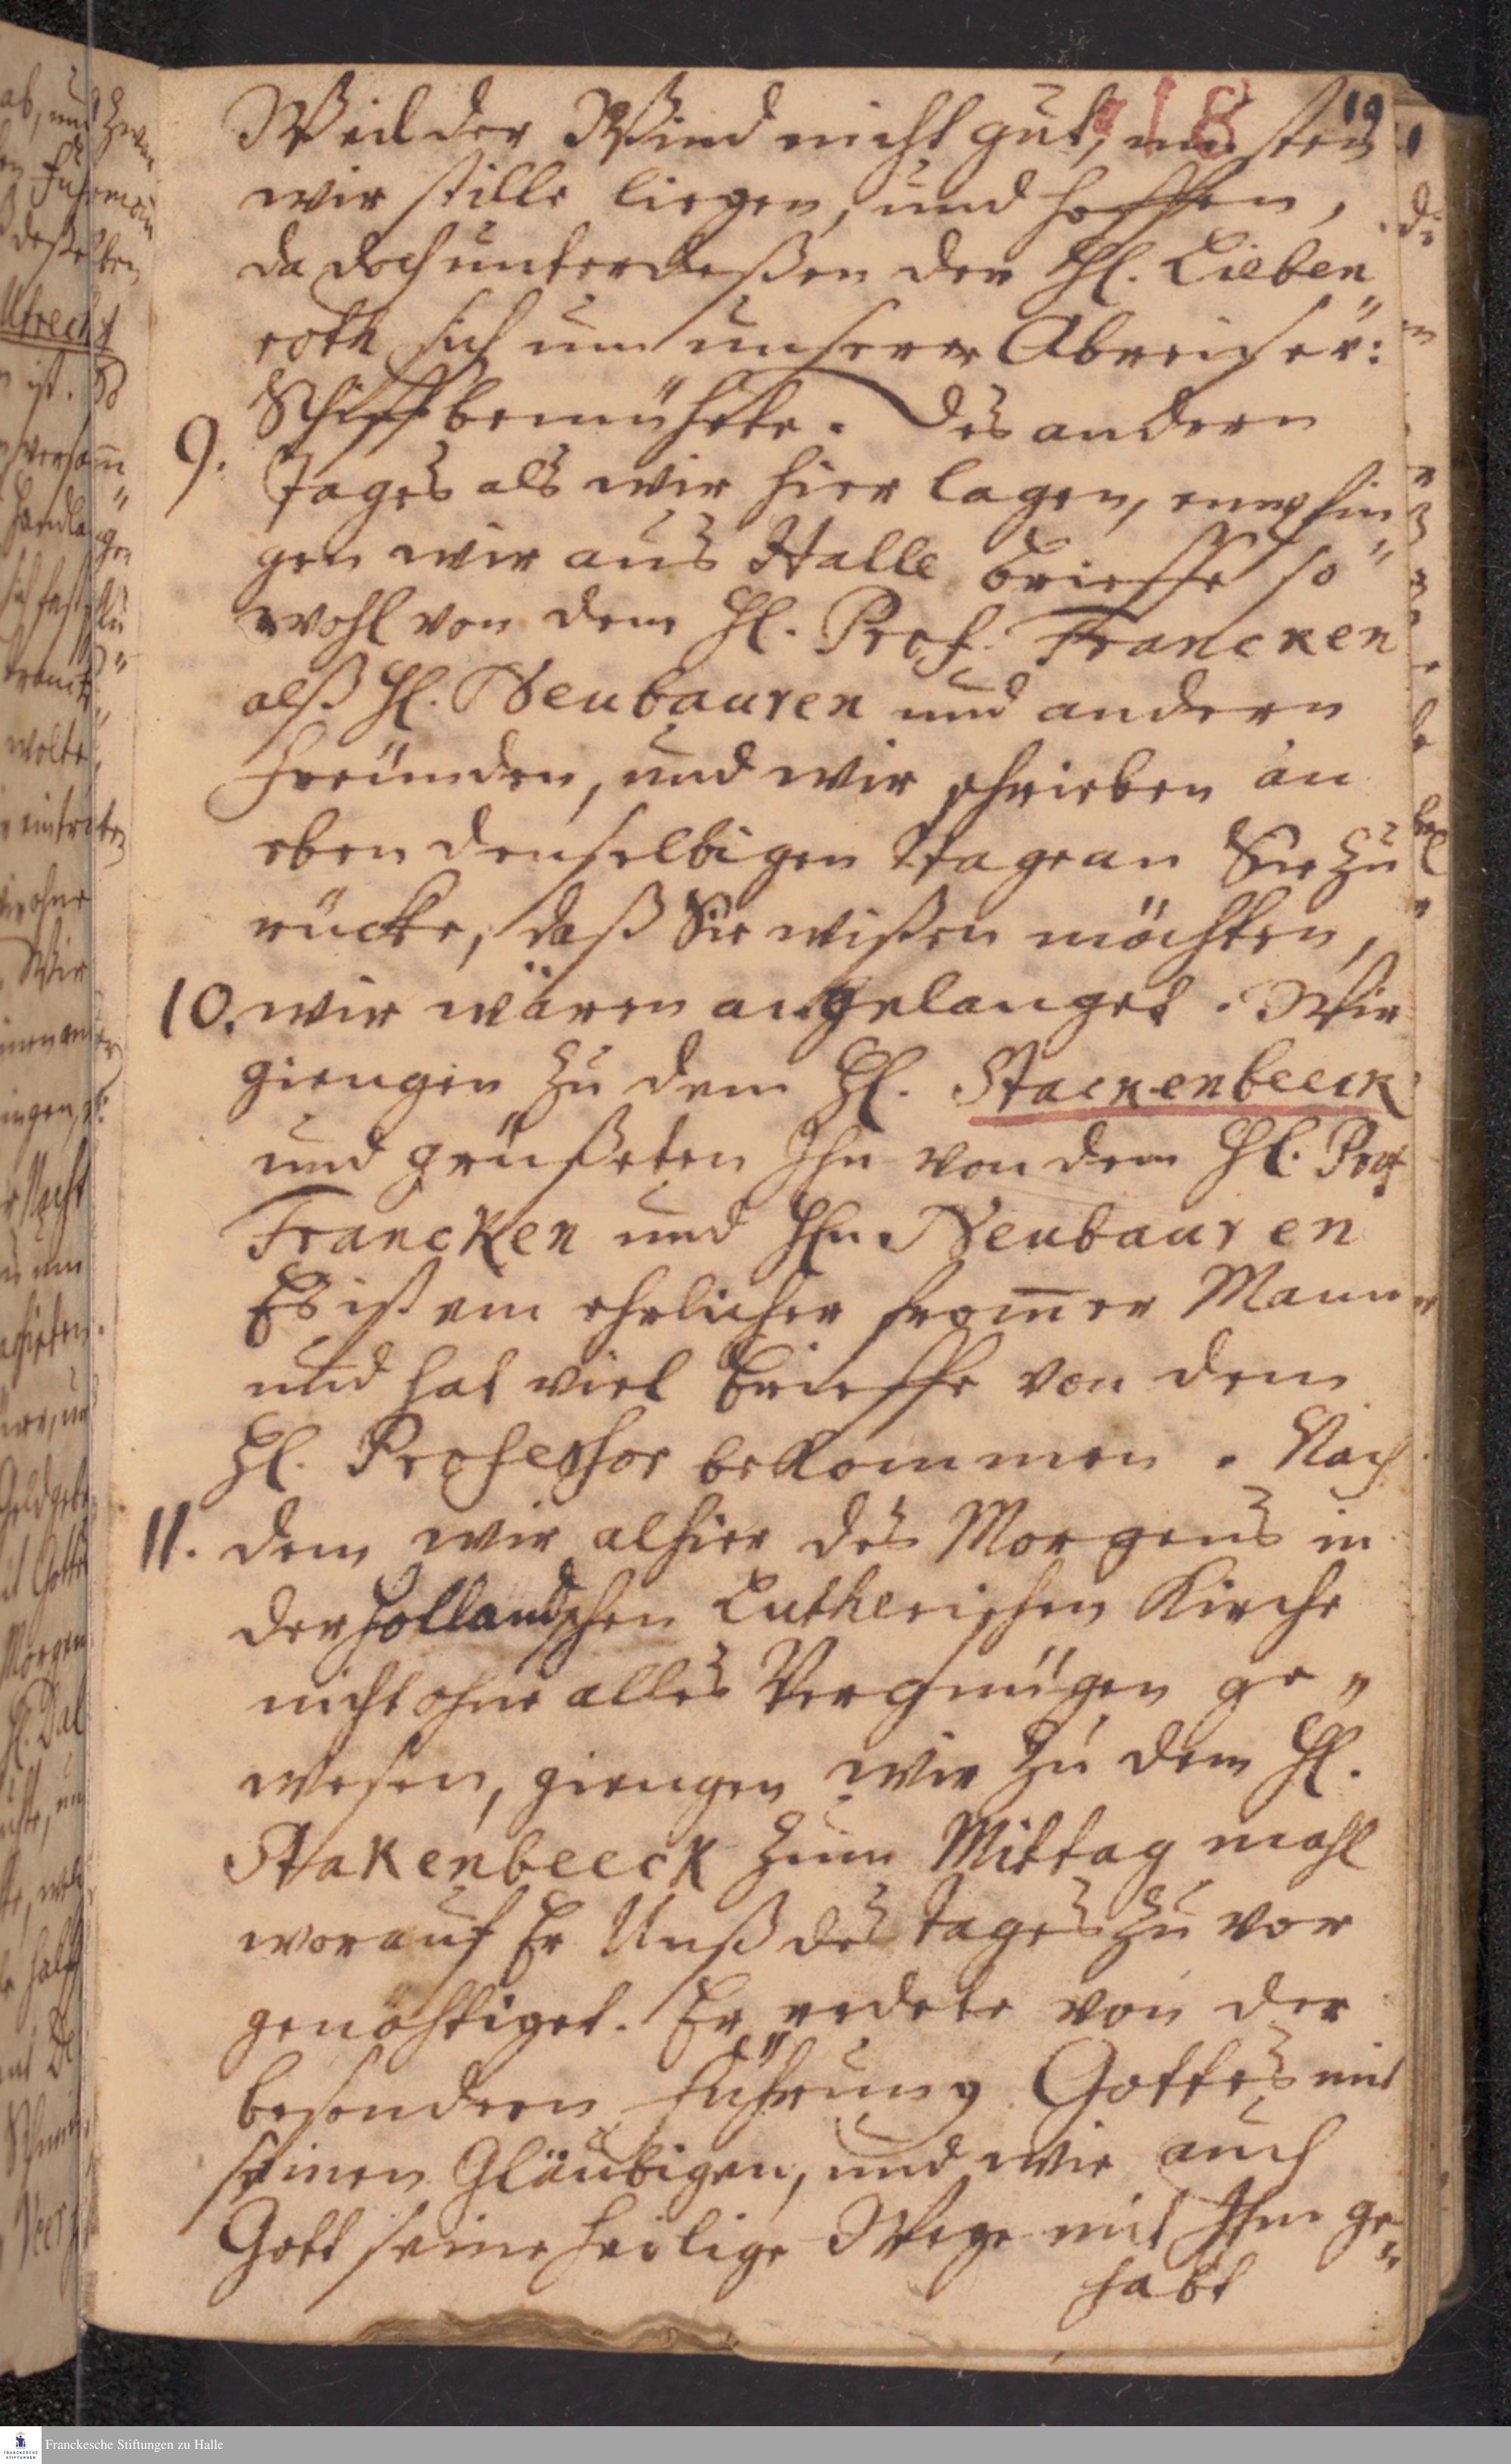 19
918
Weil der Wind nicht gut, musten
wir stille liegen, und hoffen,
da doch unterdeßen der Hl. Lieben
roth sich um unserer Abreise r:
Schiff bemühete. Des andern
9. Tages als wir hier lagen, empfin
gen wir aus Halle Brieffe so"
wohl von dem Hl. Prof. Francken
alß Hl. Neubauren und andern
Freünden, und wir schrieben an
eben denselbigen Tage an Sie zu
rücke, daß Sie wißen möchten,
10. wir wären angelanget. Wir
giengen zu dem Hl. Stackenbeeck
und grüßeten Ihn von dem Hl. Prof
Francken und Hln Neubauren
Es ist ein ehrlicher from̅er Mann
und hat viel Brieffe von dem
Hl. Professor bekommen. Nach
11. dem wir alhier des Morgens in
der Hollandschen Lutherischen Kirche
nicht ohne alles Vergnügen ge"
wesen, giengen wir zu dem Hl.
Stakenbeeck zum Mittag mahl
worauf Er Unß des Tages zu vor
genöhtiget. Er redete von der
besondern Führung Gottes mit
seinen Gläubigen, und wie auch
Gott seine heilige Wege mit Ihm ge"
habt
Franckesche Stiftungen zu Halle